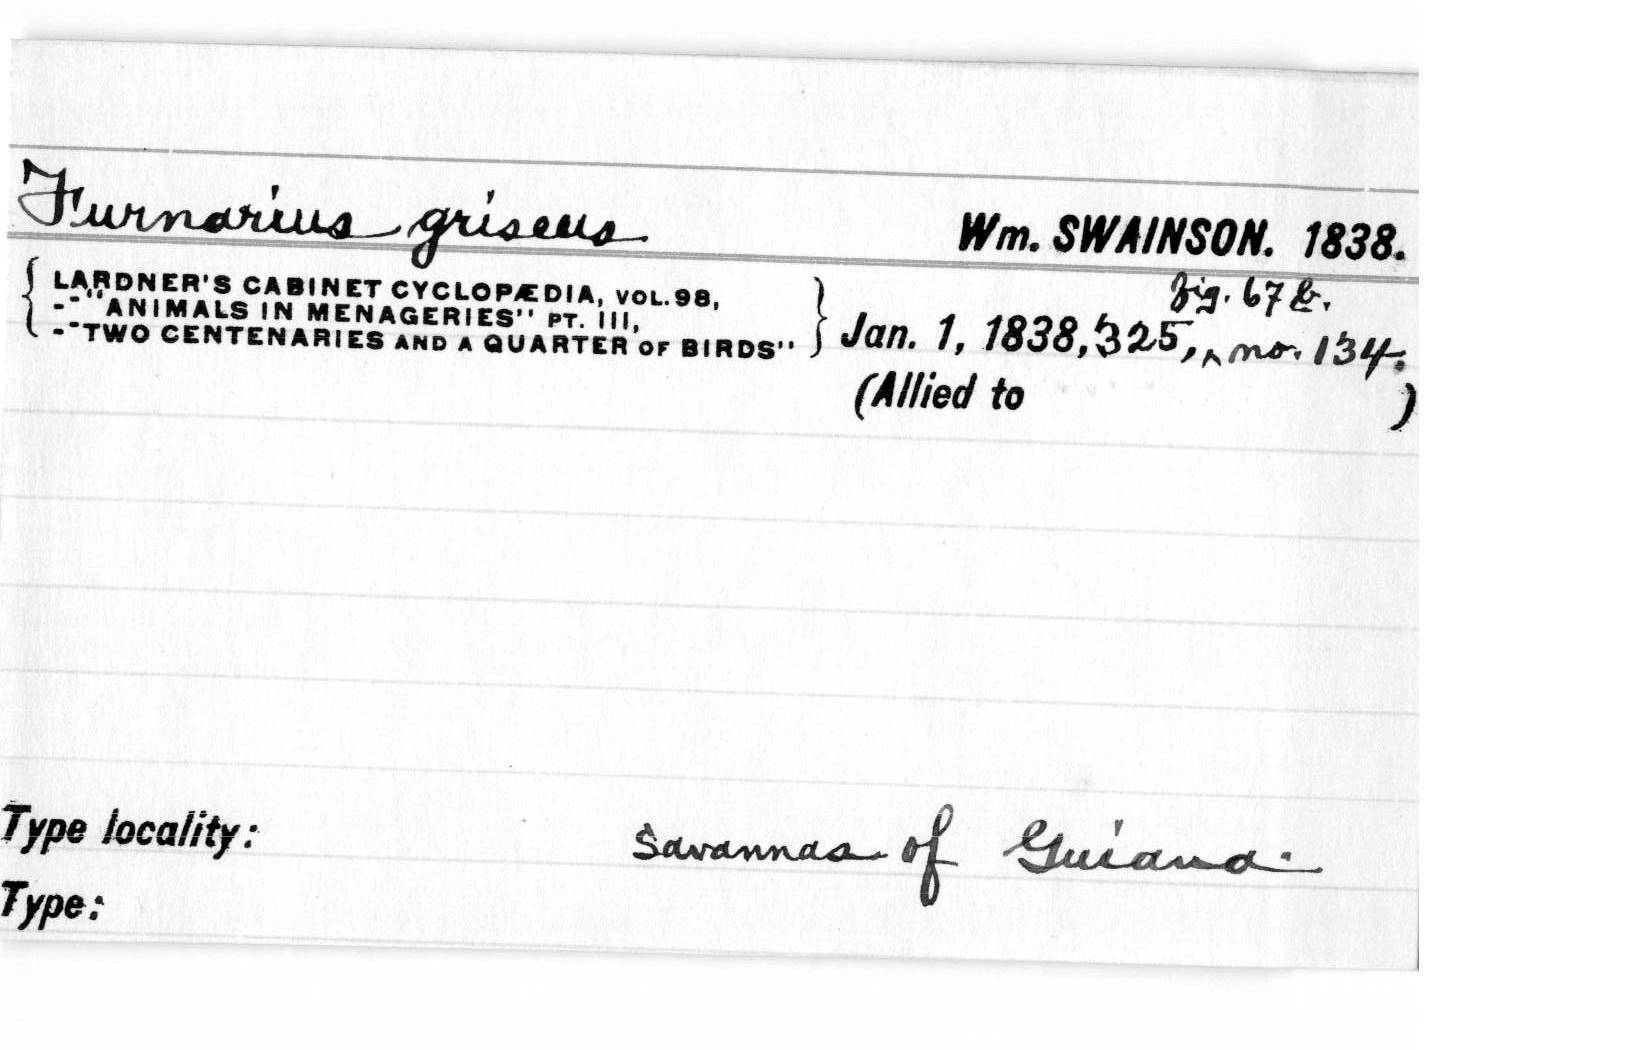 Furnarius griseus
Wm. SWAINSON. 1838.
LARDNER'S CABINET CYCLOPÆDIA, VOL. 98,
--"ANIMALS IN MENAGERIES" PT. III,
--"TWO CENTENARIES AND A QUARTER OF BIRDS"
fig. 67 b.
Jan. 1, 1838, 325, ^ no. 134.
(Allied to )
Type locality: Savannas of Guiana.
Type: